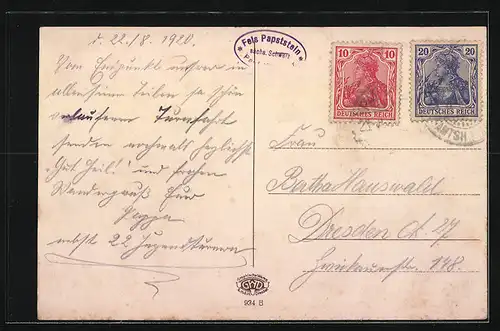 d. 22./8. 1920.
Vom Endpunkt unserer in
allen seinen Teilen so schön
verlaufenen Turnfahrt
senden nochmals herzlichst
"Gut Heil!" und frohen
Wandergruß Euer
Pappa
nebst 22 Jugendturnern
* Fels Papststein *
sächs. Schweiz
10 10
DEUTSCHES REICH
20 20
DEUTSCHES REICH
Frau
Bertha Hauswald
Dresden A. 27
Zwickauerstr. 148.
934 B